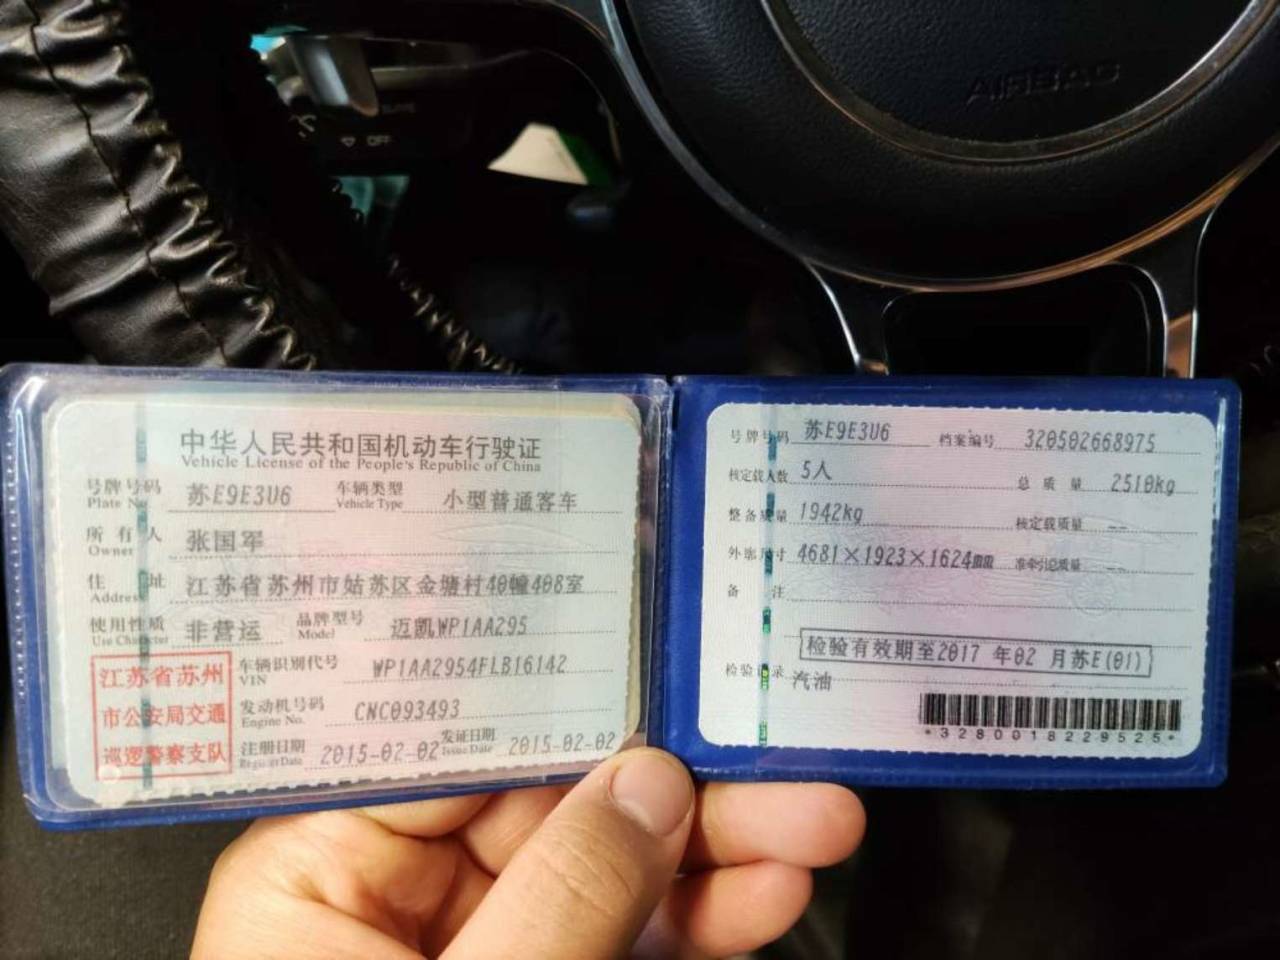 AIRBAG
OFF
中华人民共和国机动车行驶证
Vehicle License of the People's Republic of China
号牌号码 苏E9E3U6 车辆类型 小型普通客车
Plate No. Vehicle Type
所有人 张国军
Owner
住址 江苏省苏州市姑苏区金塘村40幢408室
Address
使用性质 非营运 品牌型号 迈凯WP1AA295
Use Character Model
江苏省苏州
市公安局交通
巡逻警察支队
车辆识别代号 WP1AA2954FLB16142
VIN
发动机号码 CNC093493
Engine No.
注册日期 2015-02-02 发证日期 2015-02-02
Register Date Issue Date
号牌号码 苏E9E3U6 档案编号 320502668975
核定载人数 5人 总质量 2510kg
整备质量 1942kg 核定载质量 --
外廓尺寸 4681×1923×1624mm 准牵引总质量 --
备注
检验有效期至2017 年02 月苏E(01)
检验记录 汽油
*3280018229525*